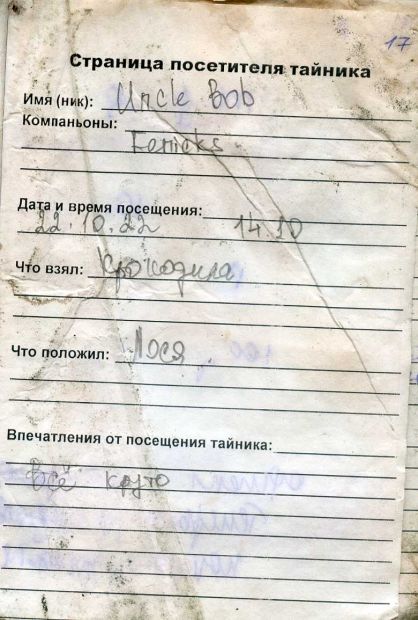 17
Страница посетителя тайника
Имя (ник): Uncle Bob
Компаньоны:
Fenicks
Дата и время посещения:
22.10.22 14.10
Что взял: Крокодила
Что положил: Лося
Впечатления от посещения тайника:
Всё круто